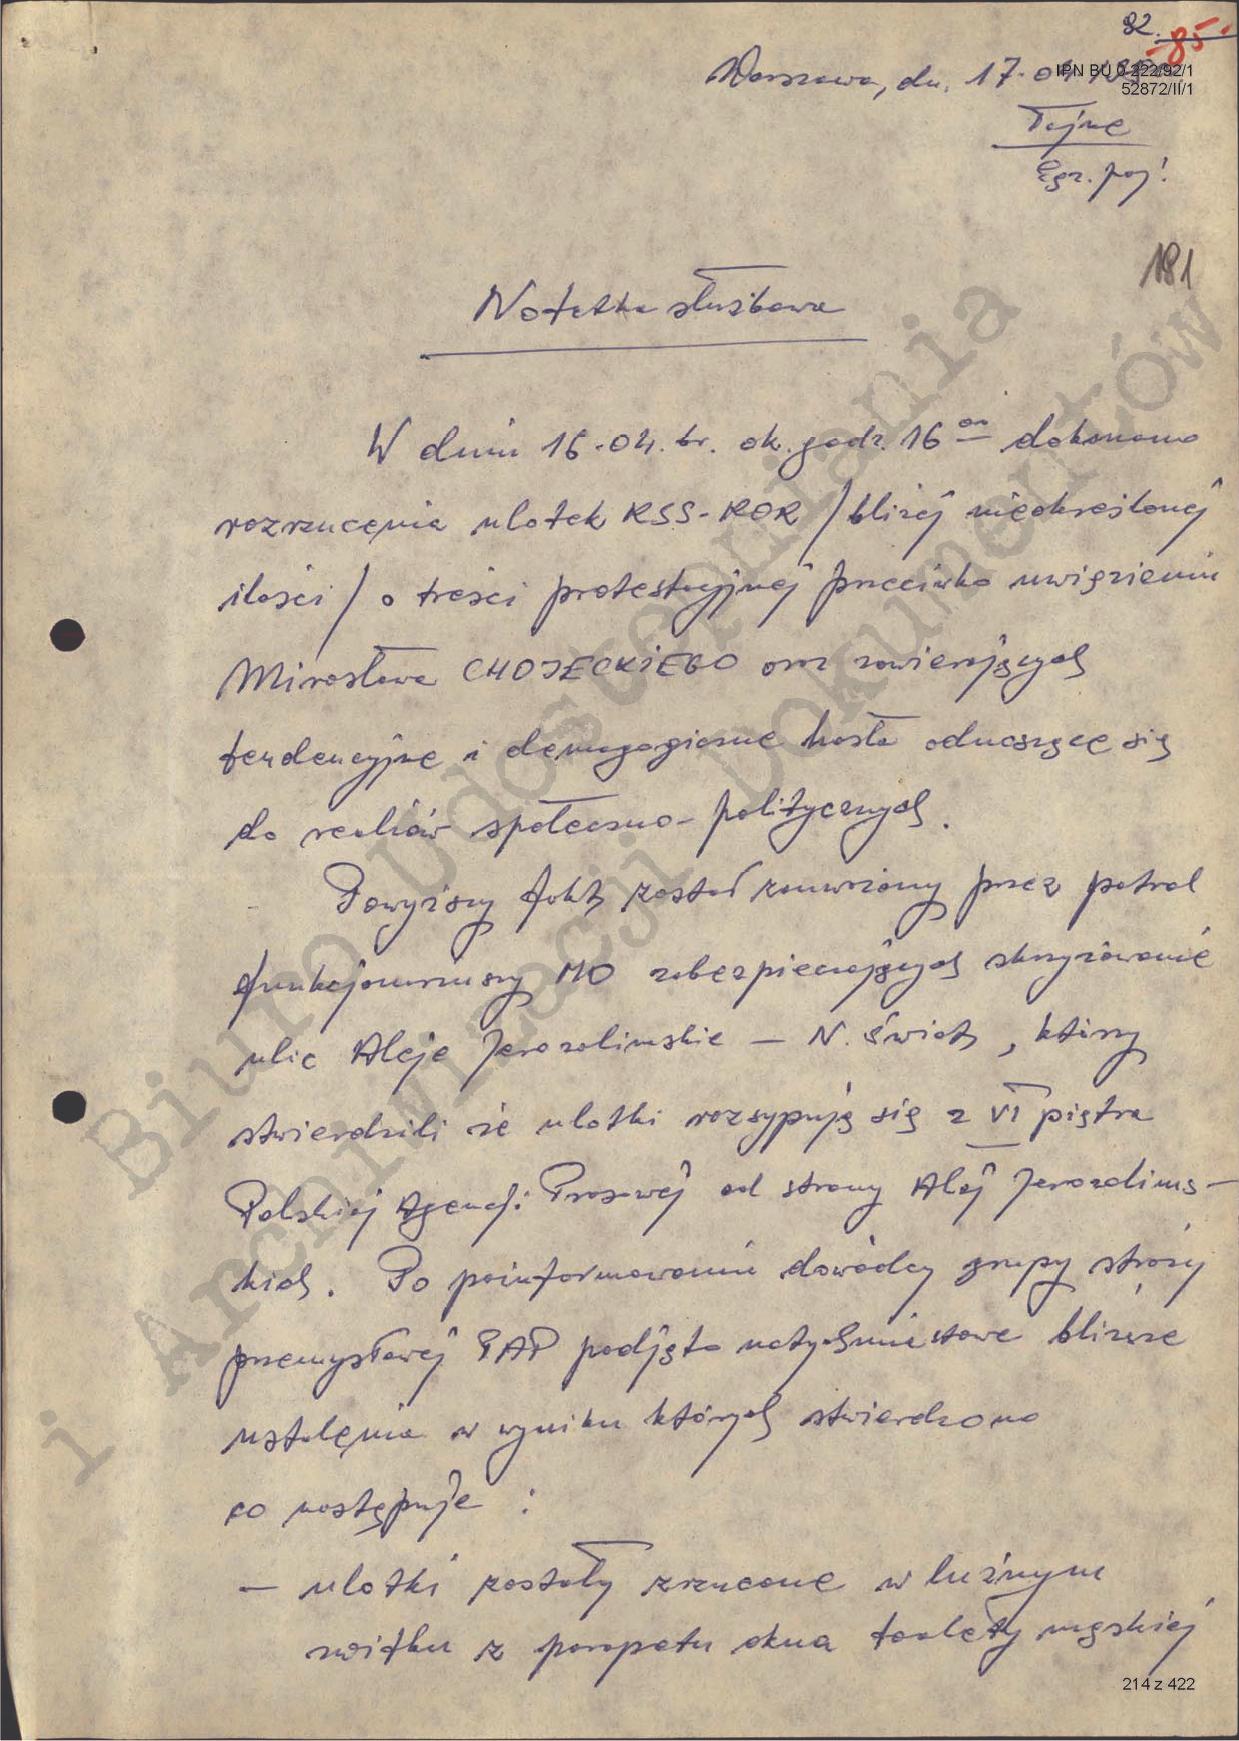 82.
85.
Warszawa, dn. 17.04.
IPN BU 0 222/92/1
52872/II/1
Tajne
Egz. poj!
181
Notatka służbowa
W dniu 16.04. br. ok. godz. 16 00 dokonano
rozrzucenia ulotek KSS-KOR /bliżej nieokreślonej
ilości/ o treści protestacyjnej przeciwko uwięzieniu
Mirosława CHOJECKIEGO oraz zawierających
tendencyjne i demagogiczne hasła odnoszące się
do realiów społeczno-politycznych.
Powyższy fakt został zauważony przez patrol
funkcjonariuszy MO zabezpieczających skrzyżowanie
ulic Aleje Jerozolimskie – N. Świat, którzy
stwierdzili że ulotki rozsypują się z VI piętra
Polskiej Agencji Prasowej od strony Alej Jerozolims-
kich. Po poinformowaniu dowódcy grupy straży
przemysłowej PAP podjęto natychmiastowe bliższe
ustalenia w wyniku których stwierdzono
co następuje :
– ulotki zostały zrzucone w luźnym
zwitku z parapetu okna toalety męskiej
214 z 422
Biuro Udostępniania
i Archiwizacji Dokumentów